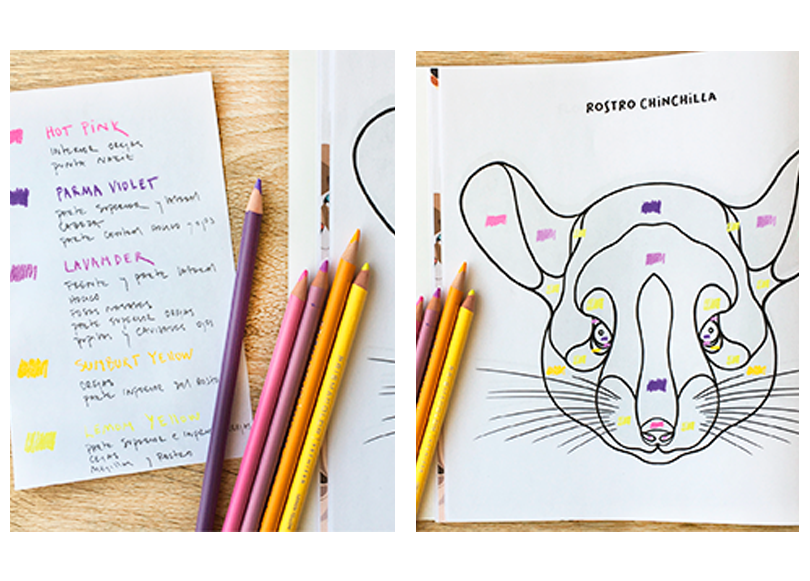 HOT PINK
INTERIOR OREJAS
PUNTA NARIZ
PARMA VIOLET
PARTE SUPERIOR Y LATERAL
CABEZA
PARTE CENTRAL HOCICO Y OJOS
LAVANDER
FRENTE Y PARTE LATERAL
HOCICO
FOSAS NASALES
PARTE SUPERIOR OREJAS
PUPILAS Y CAVIDADES OJOS
SUNBURT YEROW
CEJAS
PARTE INFERIOR DEL ROSTRO
LEMON YELLOW
PARTE SUPERIOR E
CEJAS
MEJILLAS Y ROSTRO
ROSTRO CHINCHILLA